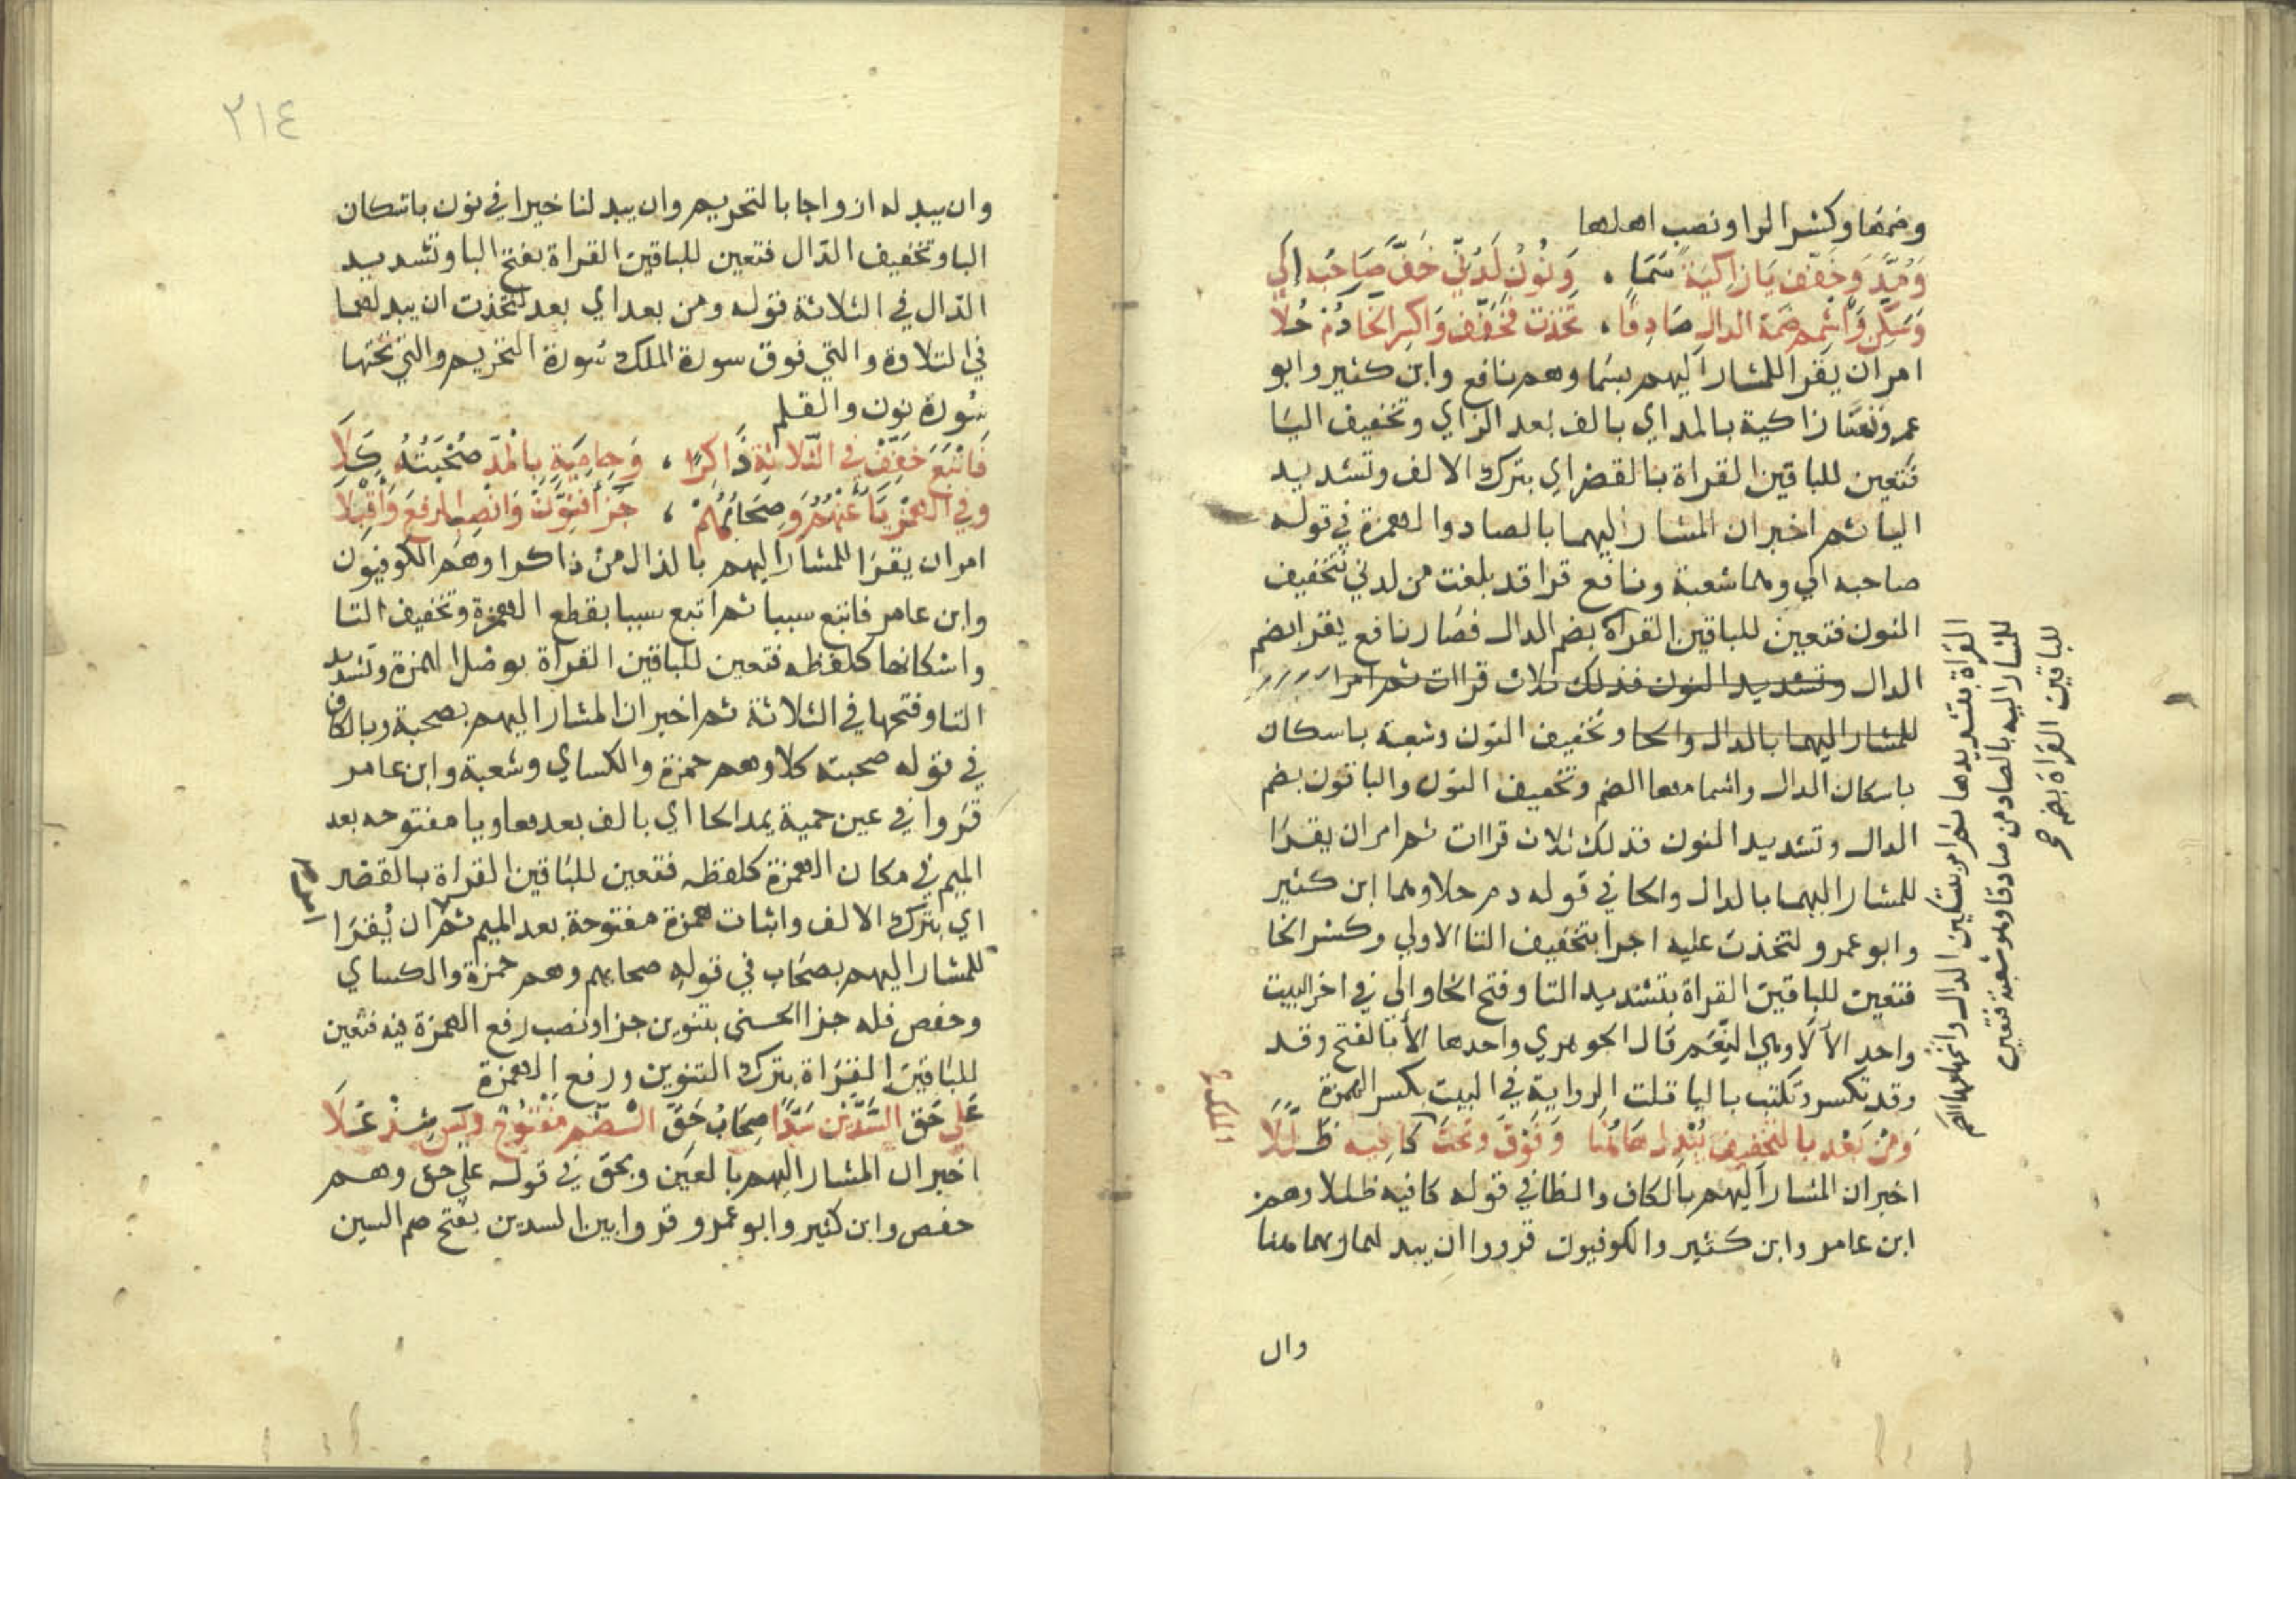 وضمها وكسر الرا ونصب اهلها
وَمُدَّ وَخَفِّف يَا زَاكِيَةً سَمَا ، وَنُونُ لَدُنِّي خَفَّ صَاحِبُه اِلَى
وَسَكِّن وَاَشْمِم ضمَّة الدال صَادِقًا ، تَخِذت فَخَفِّف وَاكسِر الخَا دُم حُلَا
امر ان يقرا للمشار اليهم بسما وهم نافع وابن كثير وابو
عمرو نفسًا زاكية بالمد اي بالف بعد الزاي وتخفيف اليا
فتعين للباقين القراة بالقصر اي بترك الالف وتشديد
اليا ثم اخبر ان المشار اليهما بالصاد والهمزة في قوله
صاحبه الي وهما شعبة ونافع قرا قد بلغت من لدني بتخفيف
النون فتعين للباقين القراة بضم الدال فصار نافع يقرا بضم
الدال وتشديد النون فذلك ثلاث قراات ثم امرا
للمشار اليهما بالدال والحا وتخفيف النون وشعبة باسكان
باسكان الدال واشمامها الضم وتخفيف النون والباقون بضم
الدال وتشديد النون فذلك ثلاث قراات ثم امر ان يقرا
للمشار اليهما بالدال والحا في قوله دم حلا وهما ابن كثير
وابو عمرو لتخذت عليه اجرا بتخفيف التا الاولي وكسر الخا
فتعين للباقين القراة بتشديد التا وفتح الخا والي في اخر البيت
واحد الآلا وهي النعَم قال الجوهري واحدها الأ بالفتح وقد
وقد تكسر وتكتب باليا قلت الرواية في البيت بكسر الهمزة
وَمِنْ بَعْد بالتخفيف يُبْدِل هَاهُنَا وَفَوْقَ وَتحتَ كَافِيه ظَلَّلَا
اخبر ان المشار اليهم بالكاف والظا في قوله كافيه ظللا وهم
ابن عامر وابن كثير والكوفيون قرووا ان يبدلهما ربهما هنا
وال
القراة بتشديدها ثم امر بتسكين الدال واشمامها الضم
للمشار اليه بالصاد من صادقا وهو شعبة فتعين
للباقين القراة بضم صح
٢١٤
وان يبدله ازواجا بالتحريم وان يبدلنا خيرا في نون باسكان
البا وتخفيف الدّال فتعين للباقين القراة بفتح البا وتشديد
الدّال في الثلاثة قوله ومن بعد اي بعد لتخذت ان يبدلهما
في التلاوة والتي فوق سورة الملك سورة التحريم والتي تحتها
سورة نون والقلم
فَاَتْبَعَ خَفِّفْ فِي الثَّلَاثَةِ ذَاكِرًا ، وَحامِيَةٍ بِالْمَدِّ صُحْبَتُهُ كَلَا
وفي الهمْزِ يَاءٌ عَنْهُمْ وَصِحَابُهُمْ ، جَزَاءُ فَنَوِّنْ وَانْصِبِ الرفعَ وَاَقْبِلَا
امر ان يقرا للمشار اليهم بالذال من ذاكرا وهم الكوفيون
وابن عامر فاتبع سببا ثم اتبع سببا بقطع الهمزة وتخفيف التا
واسكانها كلفظه فتعين للباقين القراة بوصل الهمزة وتشديد
التا وفتحها في الثلاثة ثم اخبر ان المشار اليهم بصحبة وبالكاف
في قوله صحبته كلا وهم حمزة والكساي وشعبة وابن عامر
قروا في عين حمية بمد الحا اي بالف بعدها ويا مفتوحه بعد
الميم في مكان الهمزة كلفظه فتعين للباقين القراة بالقصر
اي بترك الالف واثبات همزة مفتوحة بعد الميم ثم ان يُقرا
امر
للمشار اليهم بصحاب في قوله صحابهم وهم حمزة والكساي
وحفص فله جزا الحسنى بتنوين جزا ونصب رفع الهمزة فيه فتعين
للباقين القراة بترك التنوين ورفع الهمزة
عَلَى حَقّ السَّدَّيْن سَدًّا صِحَابُ حَقّ الضَّم مَفْتُوحٌ وَيس شِدْ عُلَا
اخبر ان المشار اليهم بالعين وبحق في قوله علي حق وهم
حفص وابن كثير وابو عمرو قروا بين السدين بفتح ضم السين